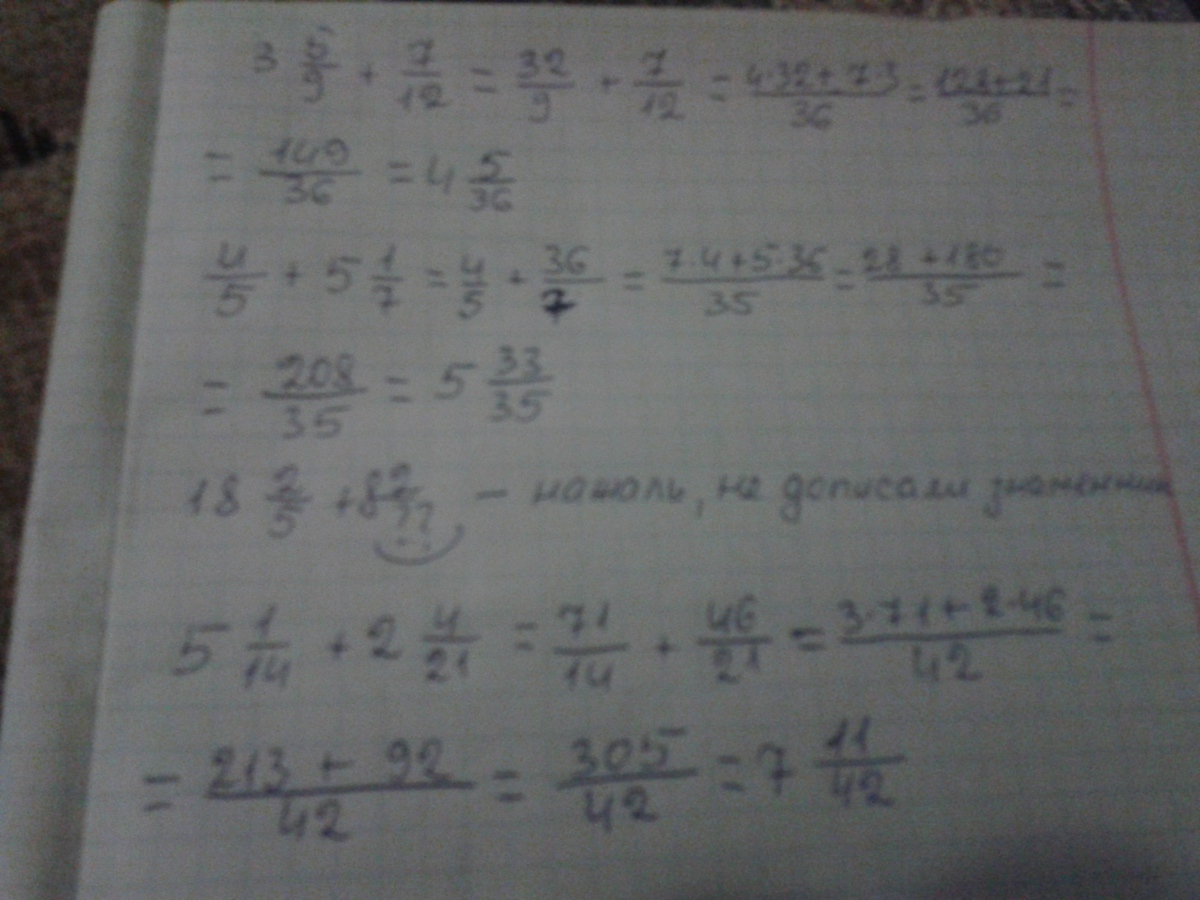 3 5/9 + 7/12 = 32/9 + 7/12 = 4·32+7·3/36 = 128+21/36 =
= 149/36 = 4 5/36
4/5 + 5 1/7 = 4/5 + 36/7 = 7·4+5·36/35 = 28+180/35 =
= 208/35 = 5 33/35
18 2/5 + 8 2/?? — нажаль, не дописали знаменник
5 1/14 + 2 4/21 = 71/14 + 46/21 = 3·71+2·46/42 =
= 213+92/42 = 305/42 = 7 11/42